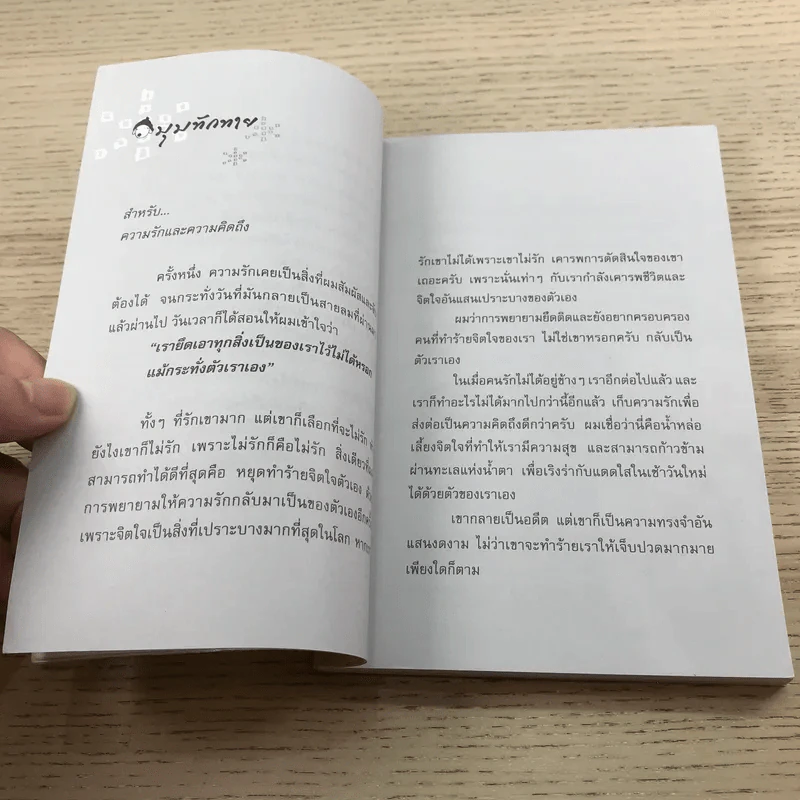 มุมทักทาย
สำหรับ...
ความรักและความคิดถึง
ครั้งหนึ่ง ความรักเคยเป็นสิ่งที่ผมสัมผัสและ
ต้องได้ จนกระทั่งวันที่มันกลายเป็นสายลมที่
แล้วผ่านไป วันเวลาก็ได้สอนให้ผมเข้าใจว่า
“เรายึดเอาทุกสิ่งเป็นของเราไว้ไม่ได้หรอก
แม้กระทั่งตัวเราเอง”
ทั้งๆ ที่รักเขามาก แต่เขาก็เลือกที่จะไม่รัก
ยังไงเขาก็ไม่รัก เพราะไม่รักก็คือไม่รัก สิ่งเดียว
สามารถทำได้ดีที่สุดคือ หยุดทำร้ายจิตใจตัวเอง
การพยายามให้ความรักกลับมาเป็นของตัวเอง
เพราะจิตใจเป็นสิ่งที่เปราะบางมากที่สุดในโลก
รักเขาไม่ได้เพราะเขาไม่รัก เคารพการตัดสินใจของเขา
เถอะครับ เพราะนั่นเท่าๆ กับเรากำลังเคารพชีวิตและ
จิตใจอันแสนเปราะบางของตัวเอง
ผมว่าการพยายามยึดติดและยังอยากครอบครอง
คนที่ทำร้ายจิตใจของเรา ไม่ใช่เขาหรอกครับ กลับเป็น
ตัวเราเอง
ในเมื่อคนรักไม่ได้อยู่ข้างๆ เราอีกต่อไปแล้ว และ
เราก็ทำอะไรไม่ได้มากไปกว่านี้อีกแล้ว เก็บความรักเพื่อ
ส่งต่อเป็นความคิดถึงดีกว่าครับ ผมเชื่อว่านี่คือน้ำหล่อ
เลี้ยงจิตใจที่ทำให้เรามีความสุข และสามารถก้าวข้าม
ผ่านทะเลแห่งน้ำตา เพื่อเริงร่ากับแดดใสในเช้าวันใหม่
ได้ด้วยตัวของเราเอง
เขากลายเป็นอดีต แต่เขาก็เป็นความทรงจำอัน
แสนงดงาม ไม่ว่าเขาจะทำร้ายเราให้เจ็บปวดมากมาย
เพียงใดก็ตาม